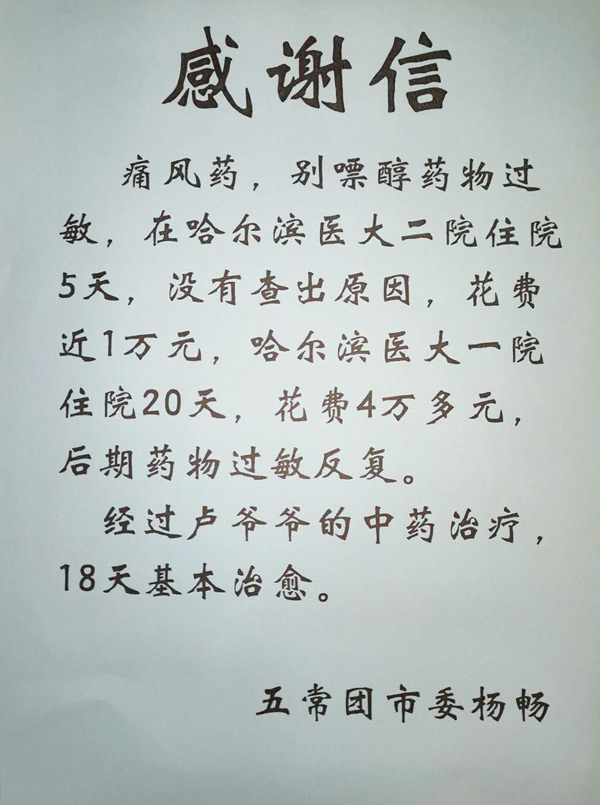 感谢信
痛风药，别嘌醇药物过
敏，在哈尔滨医大二院住院
5天，没有查出原因，花费
近1万元，哈尔滨医大一院
住院20天，花费4万多元，
后期药物过敏反复。
经过卢爷爷的中药治疗，
18天基本治愈。
五常团市委杨畅